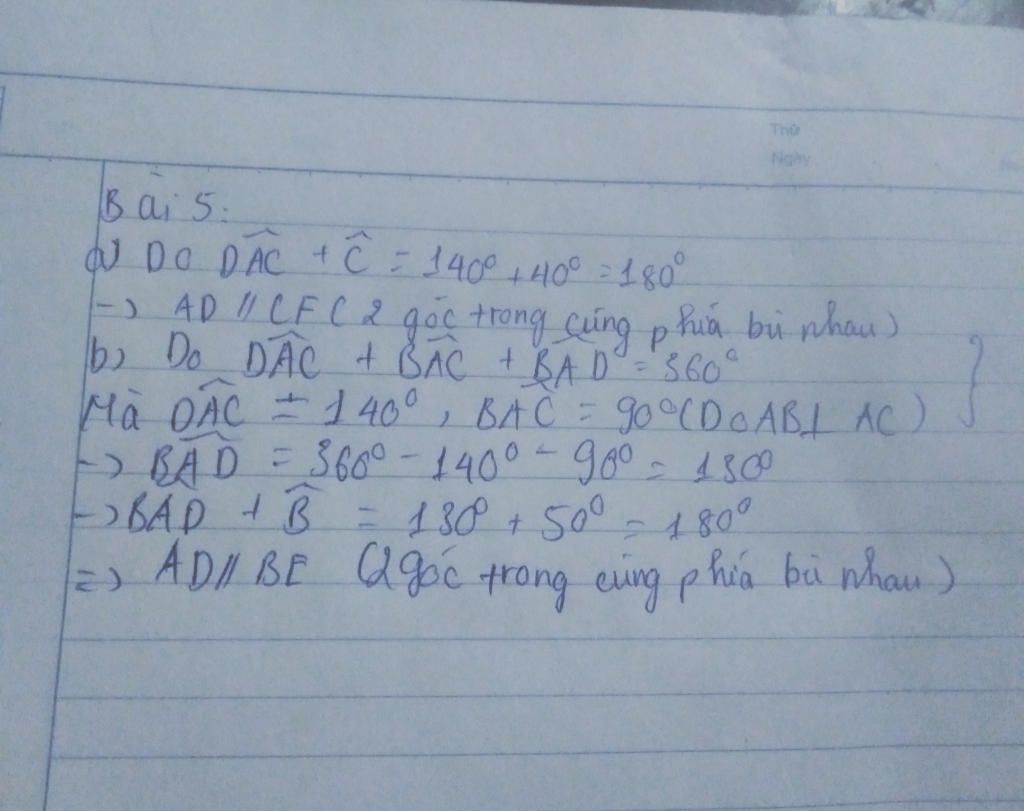 Thứ
Ngày
Bài 5:
a) Do DÂC + Ĉ = 140° + 40° = 180°
-> AD // CF ( 2 góc trong cùng phía bù nhau)
b) Do DÂC + BÂC + BÂD = 360°
Mà DÂC = 140°, BÂC = 90° (Do AB⊥ AC) }
-> BÂD = 360° - 140° - 90° = 130°
-> BAD + B̂ = 130° + 50° = 180°
=> AD // BE (2 góc trong cùng phía bù nhau)